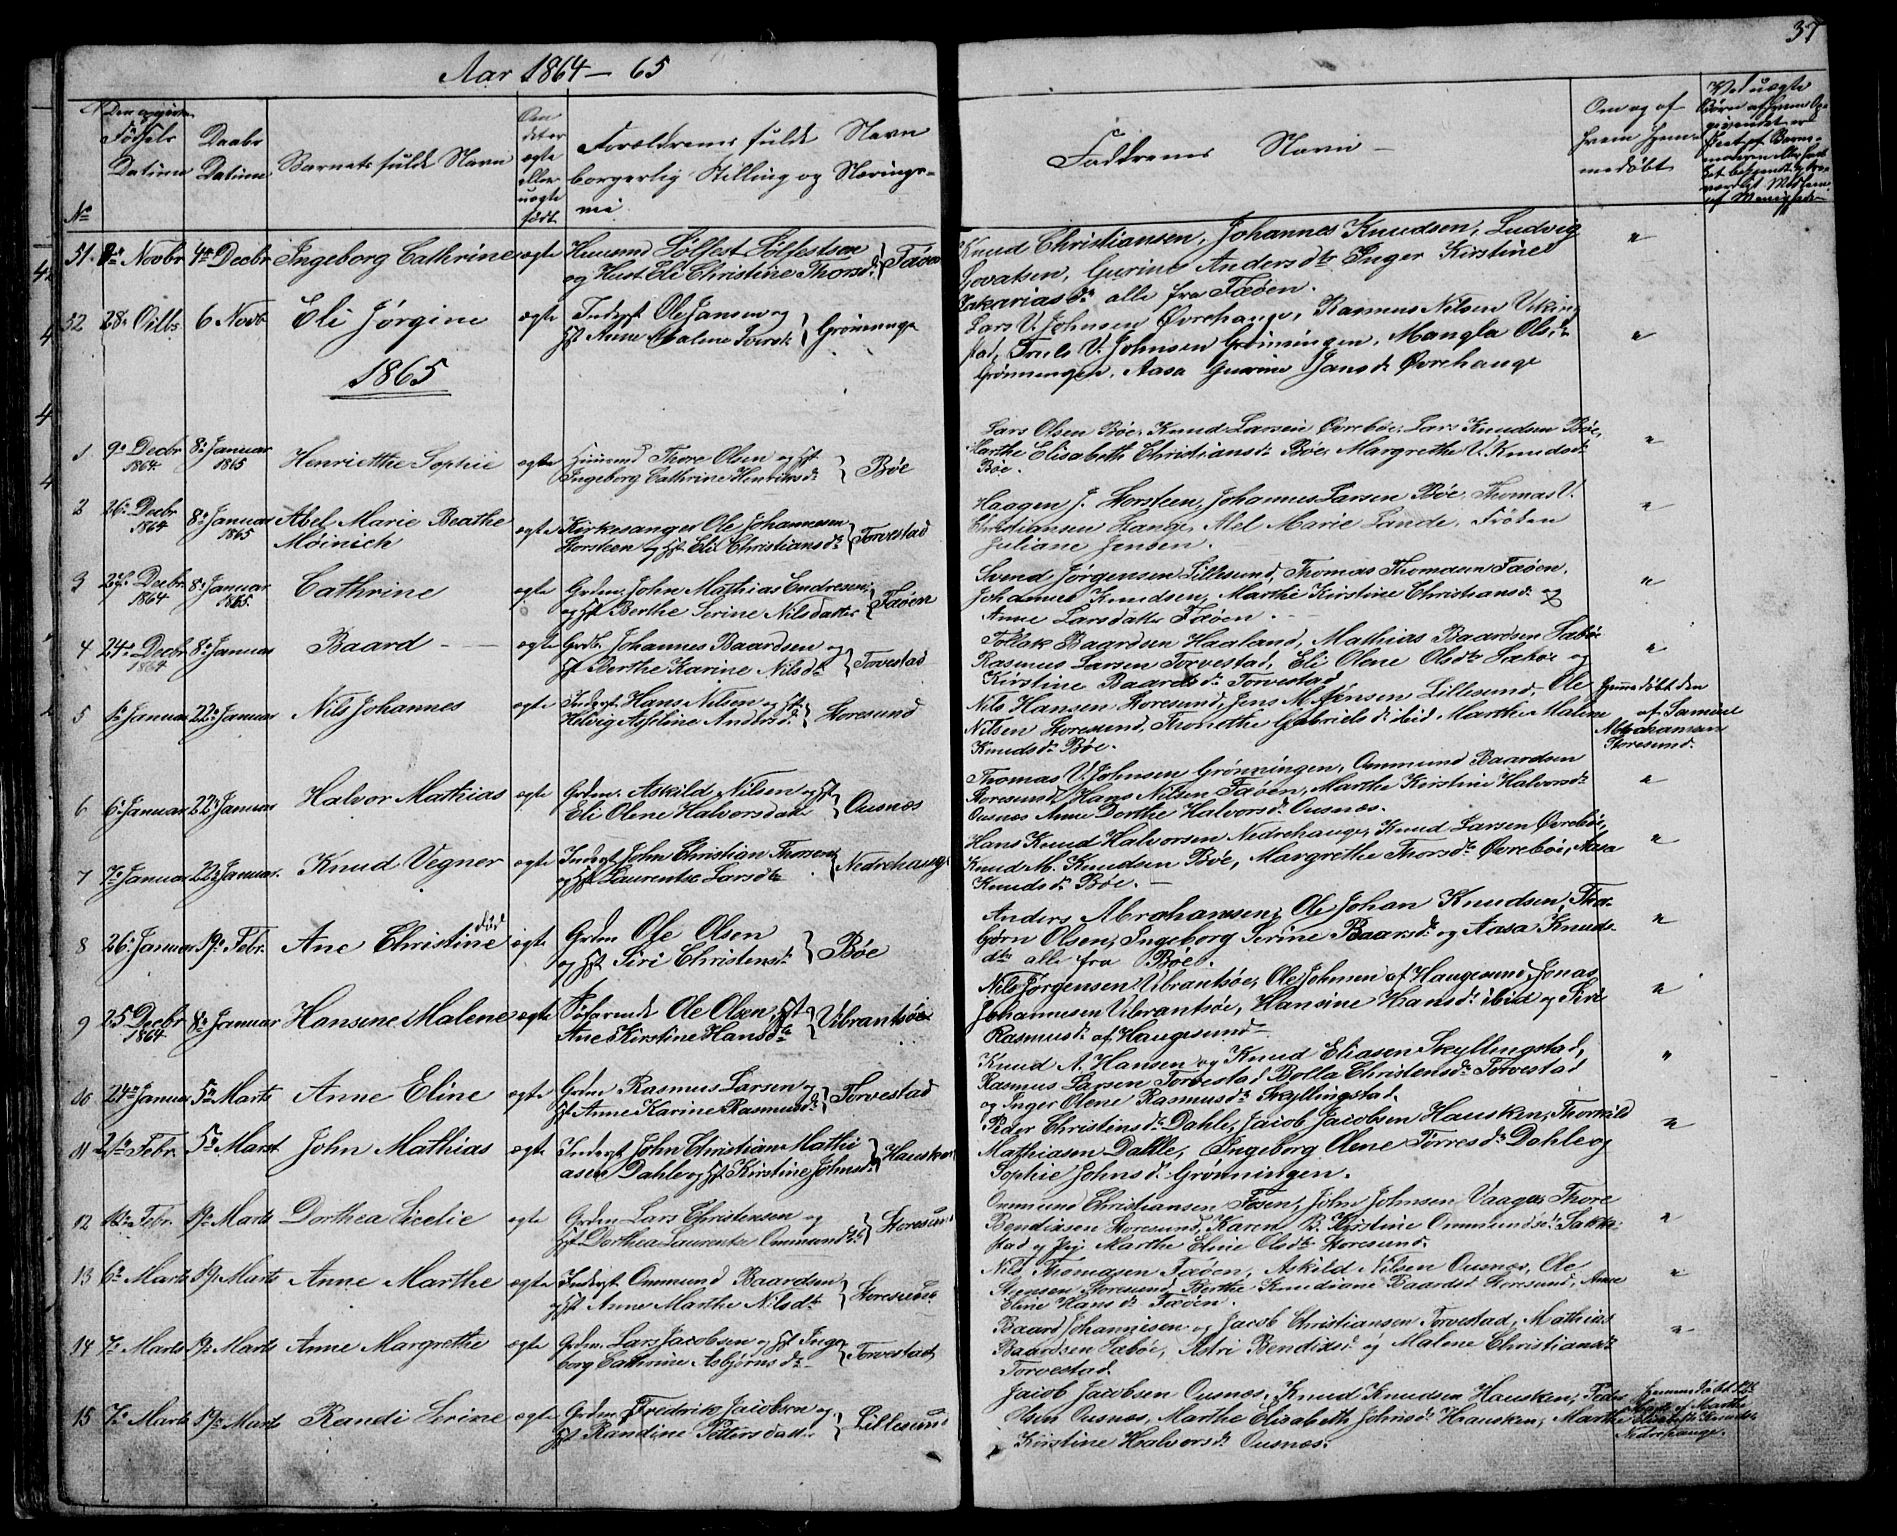 Aar 1864 – 65
37
No
Fødsels Datum
Daabs Datum
Barnets fulde Navn
Om det er ægte eller uægte født
Forældrenes fulde Navn
borgerlig Stilling og Nærings-
vei
Faddrenes Navn
Om og af hvem hjemmedøbt
51 Novbr 4de Decbr Ingeborg Cathrine ægte Huusmd Sølfest Sølfestsen
og Hust Eli Christine Thorsd. Fæøen
Knud Christiansen, Johannes Knudsen, Ludvig
Gurine Andersdtr Inger Kirstine
Zakariasdr. alle fra Fæøen.
52 28 6 Novbr Eli Jørgine ægte Inderst Ole Jansen og
Hst Anne Malene
Lars V. Johnsen Øvrehauge, Rasmus Nilsen Viking-
stad, Truls V. Johnsen Grønningen, Mangla Olsdr
Grønningen, Aasa Gurine Jansdr Øvrehauge
1865
1 9de Decbr 1864 8de Januar 1865 Henriette Sophie ægte Huusmd Thore Olsen og Hst
Ingeborg Cathrine Henriksdr Bøe
Lars Olsen Bøe, Knud Larsen Øvrebøe, Lars Knudsen Bøe,
Marthe Elisabeth Christiansdr Bøe, Margrethe V. Knudsdr
Bøe.
2 26de Decbr 1864 8de Januar 1865 Abel Marie Beathe
Møinich ægte Kirkesanger Ole Johannesen
Storsteen og Hst Eli Christiansdr Torvestad
Haagen J. Storsteen, Johannes Larsen Bøe, Thomas V.
Christiansen Hauge, Abel Marie Lande, Frøken
Juliane Jensen.
3 Decbr 1864 8de Januar 1865. Cathrine ægte Grdm. John Mathias Endresen
og Hst Berthe Serine Nilsdatter Fæøen
Svend Jørgensen Lillesund, Thomas Thomasen Fæøen,
Johannes Knudsen, Marthe Kirstine Christiansdr og
Anne Larsdatter Fæøen.
4 24de Decbr 1864 8de Januar Baard ægte Grdb. Johannes Baardsen og
Hst Berthe Karine Nilsdr Torvestad
Tollak Baardsen Haaland, Mathias Baardsen Sæbøe
Rasmus Larsen Torvestad, Eli Olene Olsdtr Sæbøe og
Kirstine Baardsdr Torvestad
5 1ste Januar 22de Januar Nils Johannes ægte Inderst Hans Nilsen og Hst
Helvig Andersdr Storesund
Nils Hansen Storesund, Jens M. Jensen Lillesund, Ole
Nilsen Storesund, Thorethe Gabrielsdr ibid Marthe Malene
Knudsdr Bøe.
Hjemmedøbt den
af Samuel
Abrahamsen
Storesund.
6 6te Januar 22de Januar Halvor Mathias ægte Grdm. Askild Nilsen og Hst
Eli Olene Halvorsdatter Ousnæs
Thomas V. Johnsen Grønningen, Ommund Baardsen
Storesund, Hans Nilsen Fæøen, Marthe Kirstine Halvorsdr
Ousnæs Anne Dorthe Halvorsdr Ousnæs.
7 7de Januar 22de Januar. Knud Vegner ægte Inderst John Christian Thorsen
og Hst Laurentse Larsdtr Nedrehauge
Hans Knud Halvorsen Nedrehauge, Knud Larsen Øvrebøe,
Knud M. Knudsen Bøe, Margrethe Thorsdtr Øvrebøe, Aasa
Knudsdr Bøe.
8 26de Januar 19de Febr. Ane Christine død ægte Grdm Ole Olsen
og Hst Siri Christensdr Bøe
Anders Abrahamsen, Ole Johan Knudsen, Thor-
bjørn Olsen, Ingeborg Serine Baarsdr og Aasa Knuds-
dtr alle fra Bøe.
9 25 Decbr 1864 8de Januar Hansine Malene ægte Søfarende Ole Olsen, Hst
Ane Kirstine Hansdtr Vibrantsøe
Nils Jørgensen Vibrantsøe, Ole Johnsen af Haugesund, Jonas
Johannesen Vibrantsøe, Hansine Hansdr ibid og Siri
Rasmusdr af Haugesund
10 24de Januar 5te Marts Anne Eline ægte Grdm Rasmus Larsen og
Hst Anne Karine Rasmusdr Torvestad
Knud A. Hansen og Knud Eliasen Skyllingstad,
Rasmus Larsen Torvestad Bolla Christensdr Torvestad
og Inger Olene Rasmusdr Skyllingstad.
11 Febr. 5te Marts John Mathias ægte Inderst John Christian Mathi-
asen Dahle og Hst Kirstine Johnsdr Hausken
Peder Christensdr Dahle, Jacob Jacobsen Hausken, Thorkild
Mathiasen Dahle, Ingeborg Olene Torresdr Dahle og
Sophie Johnsdr Grønningen.
12 Febr. 19de Marts Dorthea Sicelie ægte Grdm Lars Christensen og
Hst Dorthea Laurentse Ommundsdr Storesund
Ommund Christiansen Fosen, John Johnsen Vaage, Thore
Bendixsen Storesund, Karen B. Kirstine Ommundsdr Sakke-
stad og Pige Marthe Eline Olsdtr Storesund.
13 6te Marts 19de Marts Anne Marthe ægte Inderst Ommund Baardsen
og Hst Anne Marthe Nilsdtr Storesund
Nils Thomasen Fæøen, Askild Nilsen Ousnæs, Ole
Storesund Berthe Knudiane Baardsd Storesund, Anne
Eline Hansdr Fæøen.
14 7de Marts 19de Marts Anne Margrethe ægte Grdm. Lars Jacobsen og Hst Inge-
borg Cathrine Asbjørnsdr Torvestad
Baard Johannesen og Jacob Christiansen Torvestad, Mathias
Baardsen Sæbøe, Astri Bendixsdr og Malene Christiansdr
Torvestad.
15 7de Marts 19de Marts Randi Serine ægte Grdm. Fredrik Jacobsen og
Hst Randine Pettersdatter Lillesund
Jacob Jacobsen Ousnæs, Knud Knudsen Hausken, Peder
Olsen Ousnæs, Marthe Elisabeth Johnsdr Hausken, Marthe
Kirstine Halvorsdr Ousnæs.
Hjemmedøbt
af Marthe
Elisabeth Knudsdr
Nedrehauge.